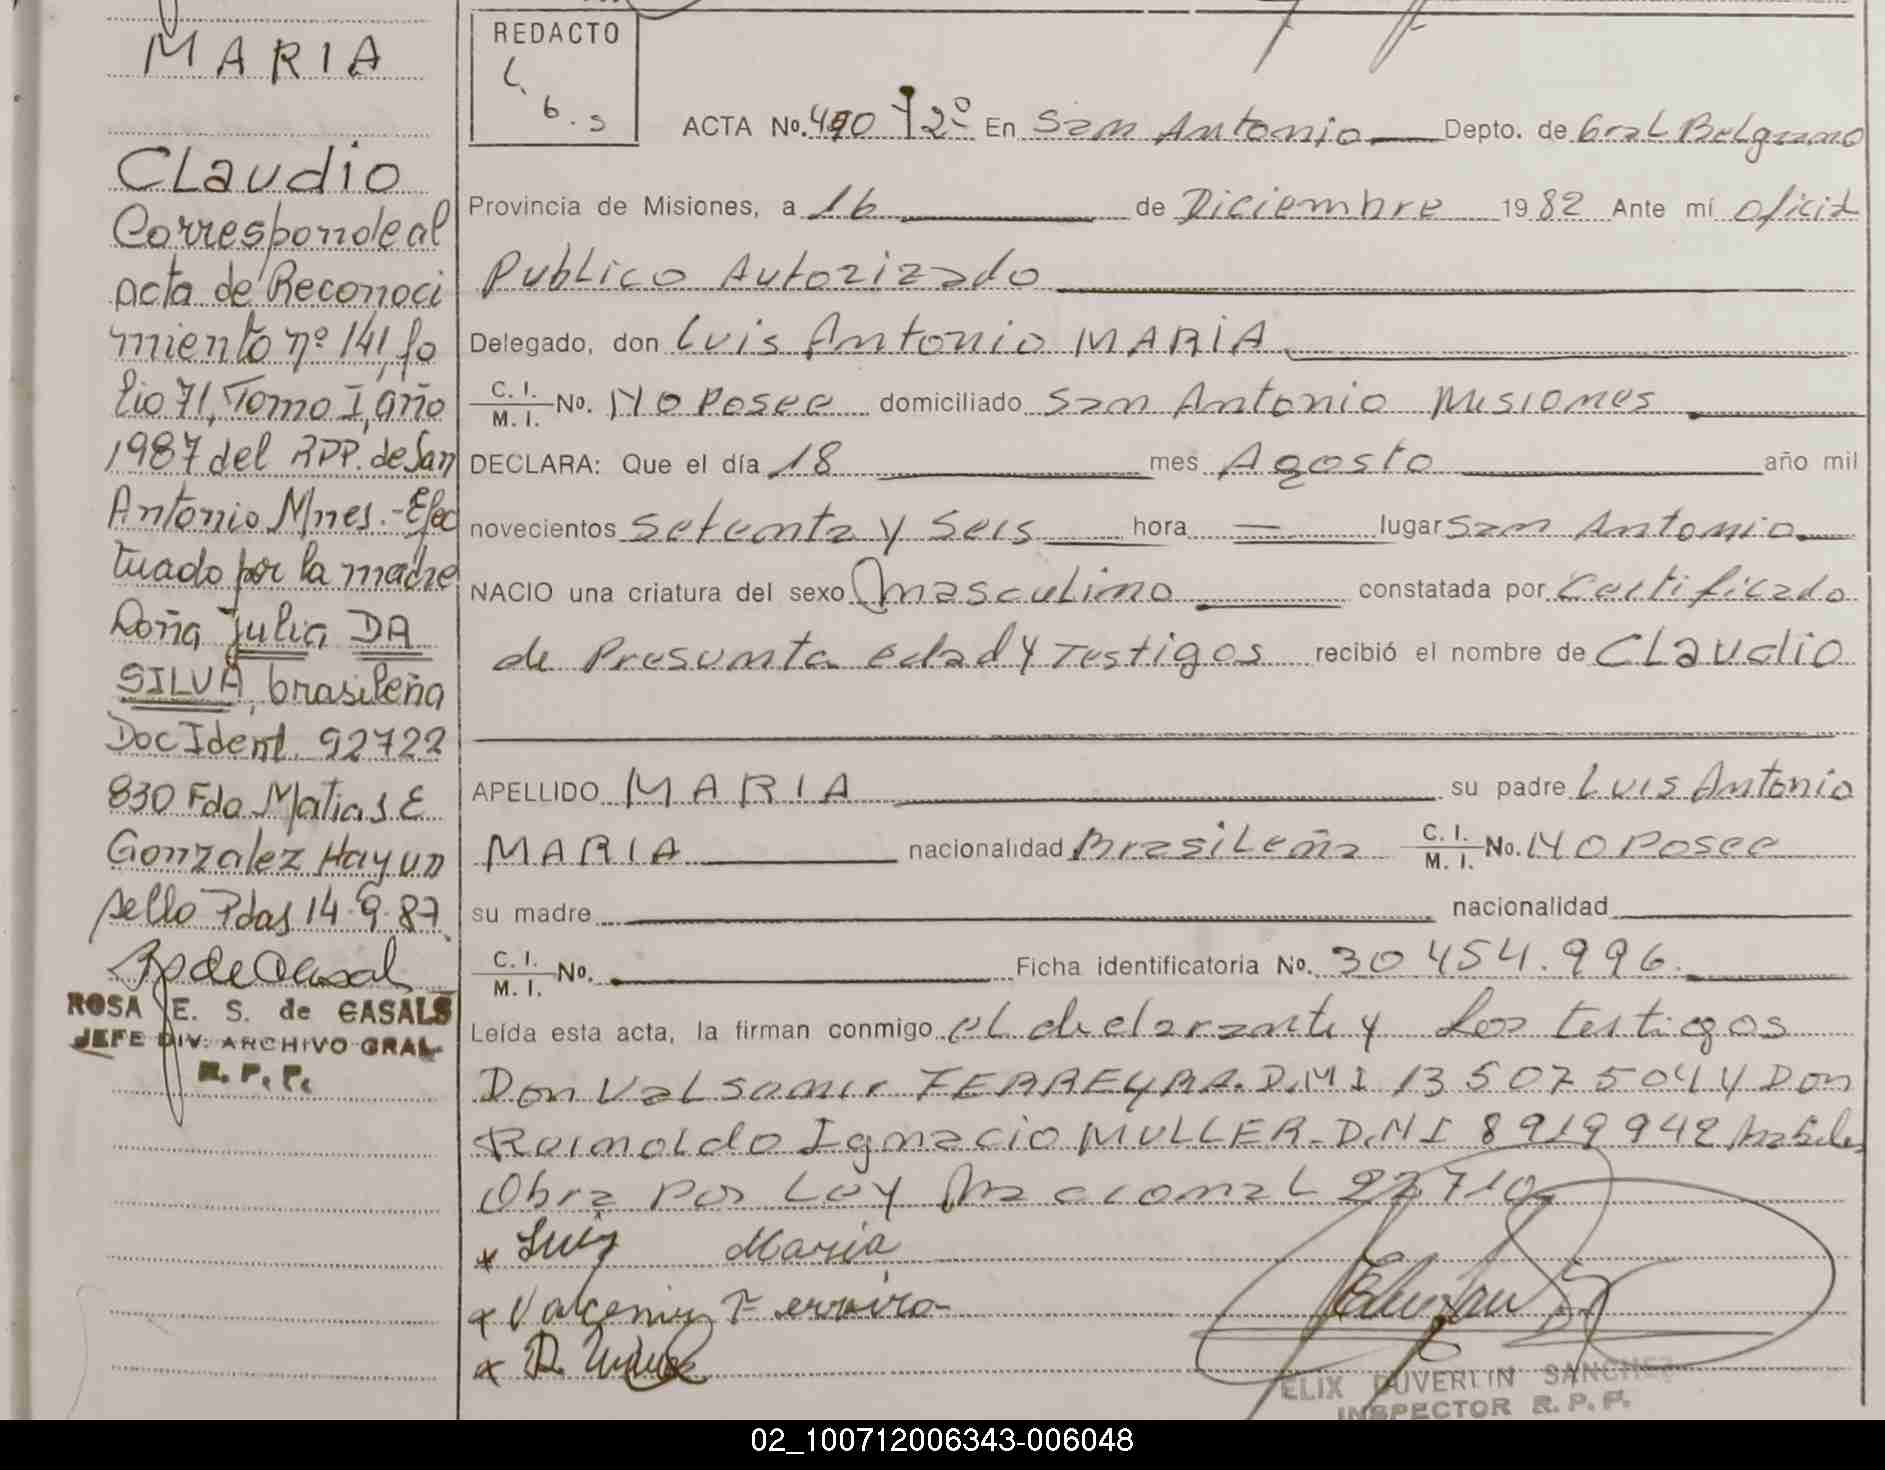 MARIA
Claudio
Corresponde al
acta de Reconoci
miento nº 141, fo
lio 71, Tomo I, año
1987 del RPP. de San
Antonio Mnes.- Efec
tuado por la madre
Doña Julia DA
SILVA, brasileña
Doc Ident. 92722
830 Fdo Matias E
Gonzalez Hay un
sello Pdas 14.9.87.
ROSA E. S. de CASALS
JEFE DIV. ARCHIVO GRAL.
R. P. P.
REDACTO
ACTA No. 490 Tº 2º En San Antonio Depto. de Gral Belgrano
Provincia de Misiones, a 16 de Diciembre 1982 Ante mí oficial
Publico Autorizado
Delegado, don Luis Antonio MARIA
C. I.
M. I. No. No Posee domiciliado San Antonio Misiones
DECLARA: Que el día 18 mes Agosto año mil
novecientos setenta y seis hora lugar San Antonio
NACIO una criatura del sexo masculino constatada por certificado
de Presunta edad y Testigos recibió el nombre de Claudio
APELLIDO MARIA su padre Luis Antonio
MARIA nacionalidad Brasileña C. I.
M. I. No. No Posee
su madre nacionalidad
C. I.
M. I. No. Ficha identificatoria No. 30 454.996.
Leída esta acta, la firman conmigo el declarante y los testigos
Don Valsamir FERREYRA. D.M I 13 507 504 y Don
Reinoldo Ignacio MULLER. D.N I 8919942
Obra por Ley Nacional 22.710
x Luis Maria
x Valcemir Ferreira
x R.
ELIX DUVERLIN SANCHEZ
INSPECTOR R. P. P.
02_100712006343-006048